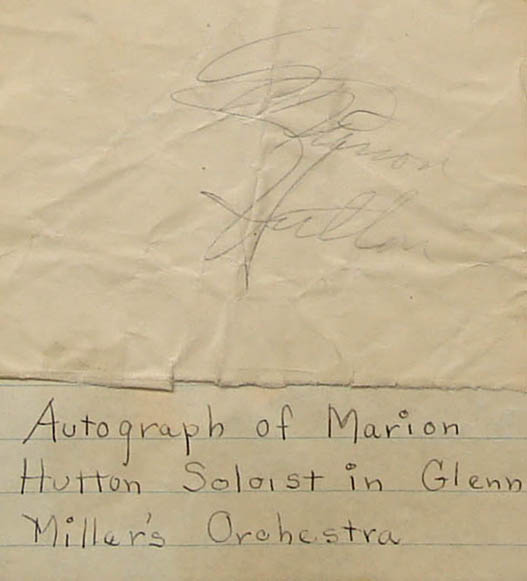 Marion
Hutton
Autograph of Marion
Hutton Soloist in Glenn
Miller's Orchestra